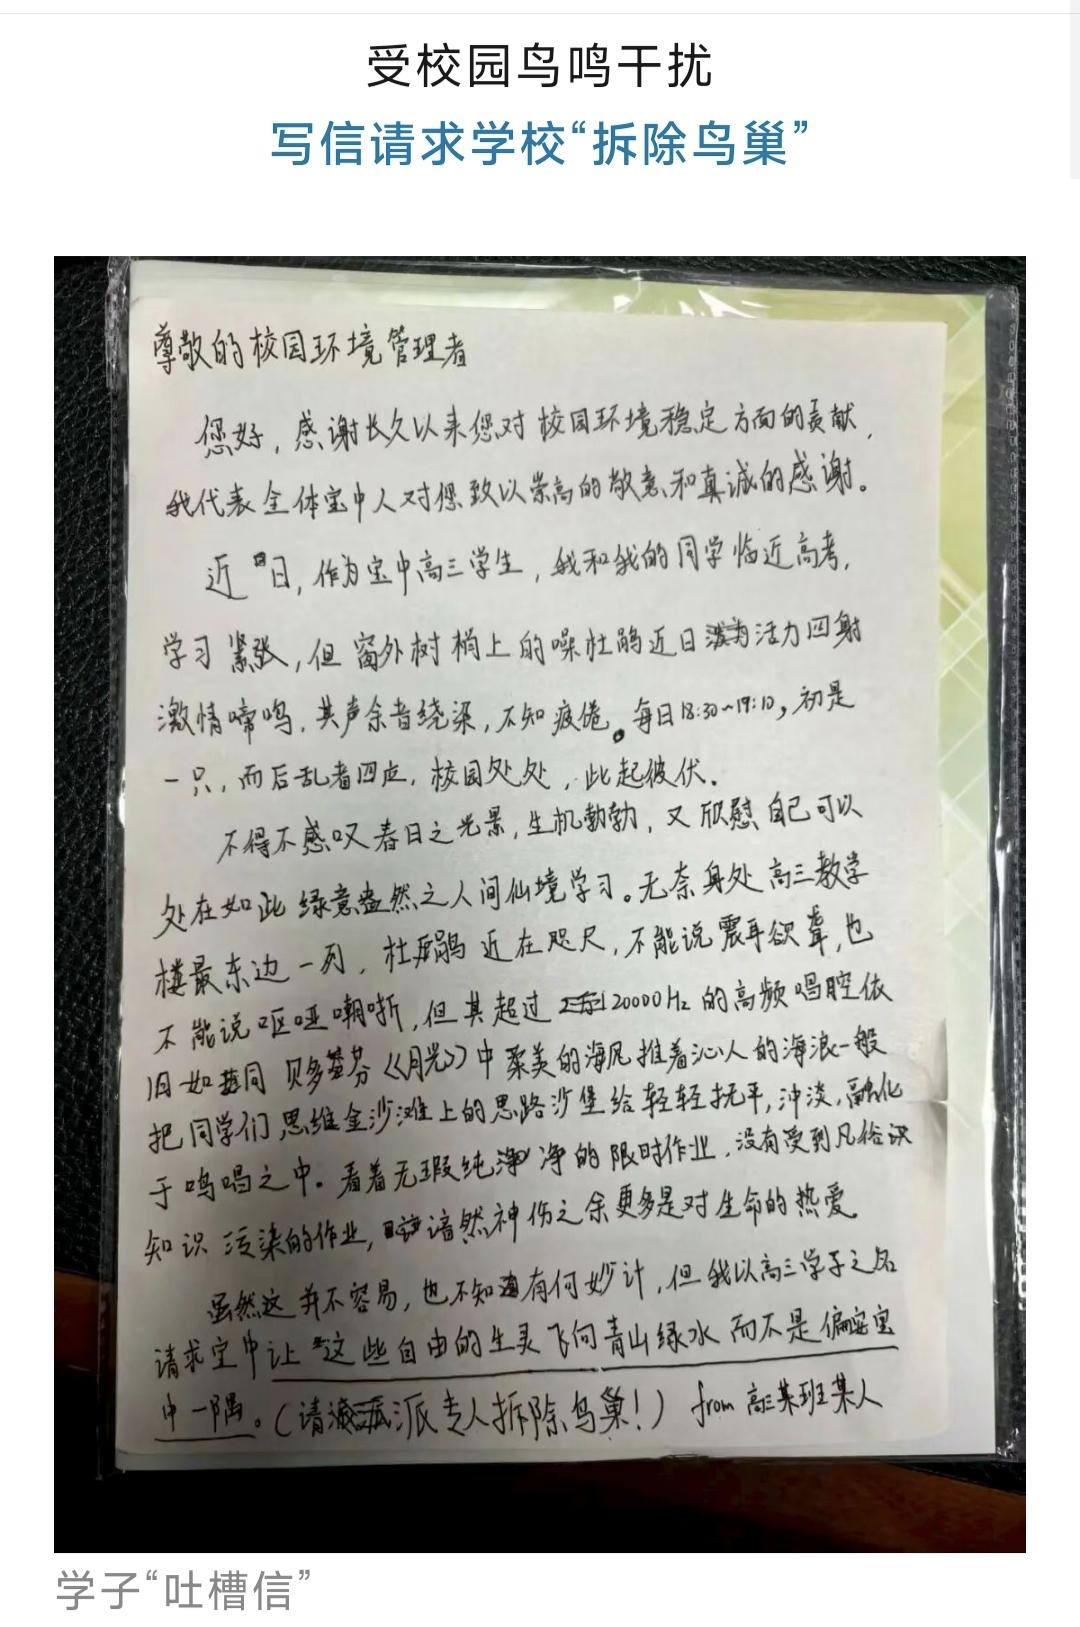 受校园鸟鸣干扰
写信请求学校“拆除鸟巢”
尊敬的校园环境管理者
您好，感谢长久以来您对校园环境稳定方面的贡献，
我代表全体宝中人对您致以崇高的敬意和真诚的感谢。
近日，作为宝中高三学生，我和我的同学临近高考，
学习紧张，但窗外树梢上的噪杜鹃近日活力四射
激情啼鸣，其声余音绕梁，不知疲倦。每日18:30~19:10，初是
一只，而后乱者四应，校园处处，此起彼伏。
不得不感叹春日之光景，生机勃勃，又欣慰自己可以
处在如此绿意盎然之人间仙境学习。无奈身处高三教学
楼最东边一列，杜鹃近在咫尺，不能说震耳欲聋，也
不能说呕哑嘲哳，但其超过20000Hz的高频唱腔依
旧如同贝多芬《月光》中柔美的海风推着沁人的海浪一般
把同学们思维金沙滩上的思路沙堡给轻轻抚平，冲淡，融化
于鸣唱之中。看着无瑕纯净的限时作业，没有受到凡俗识
知识污染的作业，谙然神伤之余更多是对生命的热爱
虽然这并不容易，也不知有何妙计，但我以高三学子之名
请求宝中让这些自由的生灵飞向青山绿水而不是偏安宝
中一隅。（请派专人拆除鸟巢！）from 高三某班某人
学子“吐槽信”